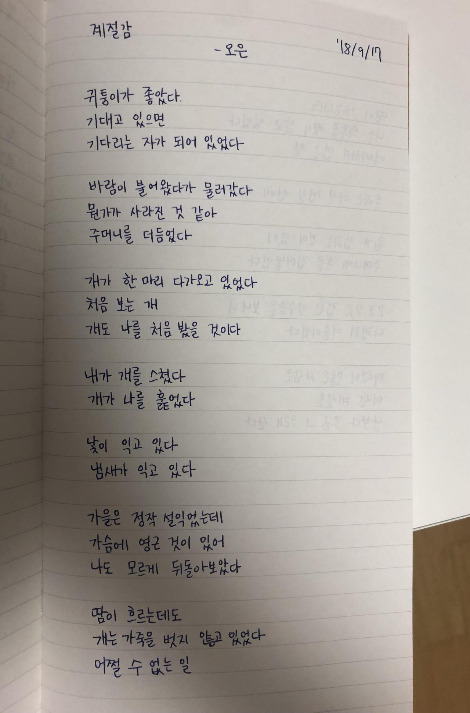 계절감
-오은
'18/9/17
귀퉁이가 좋았다.
기대고 있으면
기다리는 자가 되어 있었다
바람이 불어왔다가 물러갔다
뭔가가 사라진 것 같아
주머니를 더듬었다
개가 한 마리 다가오고 있었다
처음 보는 개
개도 나를 처음 봤을 것이다
내가 개를 스쳤다
개가 나를 훑었다
낯이 익고 있다
냄새가 익고 있다
가을은 정작 설익었는데
가슴에 영근 것이 있어
나도 모르게 뒤돌아보았다
땀이 흐르는데도
개는 가죽을 벗지 않고 있었다
어쩔 수 없는 일